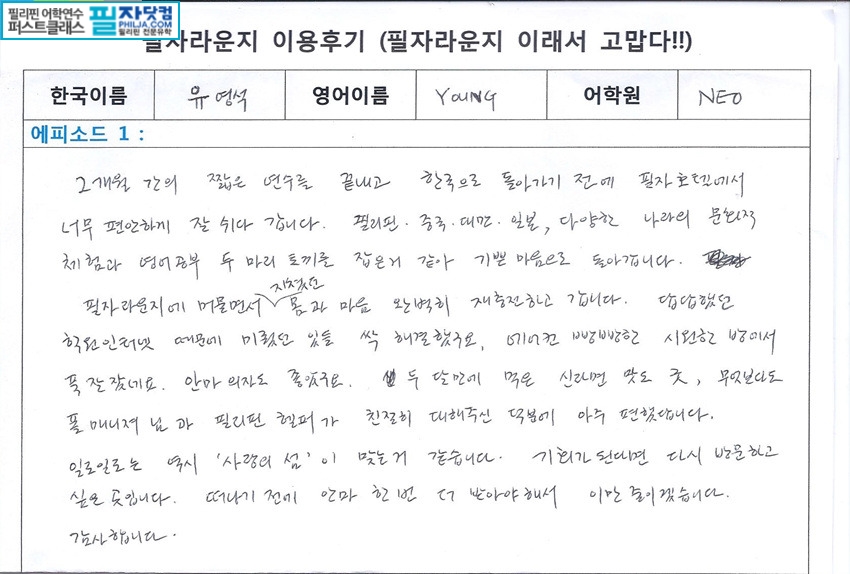 필리핀 어학연수
퍼스트클래스
필자닷컴
PHILJA.COM
필리핀 전문유학
필자라운지 이용후기 (필자라운지 이래서 고맙다!!)
한국이름 유영석 영어이름 YOUNG 어학원 NEO
에피소드 1 :
2개월 간의 짧은 연수를 끝내고 한국으로 돌아가기 전에 필자호텔에서
너무 편안하게 잘 쉬다 갑니다. 필리핀·중국·대만·일본, 다양한 나라의 문화적
체험과 영어공부 두 마리 토끼를 잡은거 같아 기쁜 마음으로 돌아갑니다.
필자라운지에 머물면서 지쳤던 몸과 마음 완벽히 재충전하고 갑니다. 답답했던
학원인터넷 때문에 미뤘던 일들 싹 해결했구요, 에어컨 빵빵한 시원한 방에서
푹 잘잤네요. 안마 의자도 좋았구요. 두 달만에 먹은 신라면 맛도 굿, 무엇보다도
폴 매니져 님과 필리핀 헬퍼가 친절히 대해주신 덕분에 아주 편했답니다.
일로일로는 역시 '사랑의 섬'이 맞는거 같습니다. 기회가 된다면 다시 방문하고
싶은 곳입니다. 떠나기 전에 안마 한 번 더 받아야해서 이만 줄이겠습니다.
감사합니다.